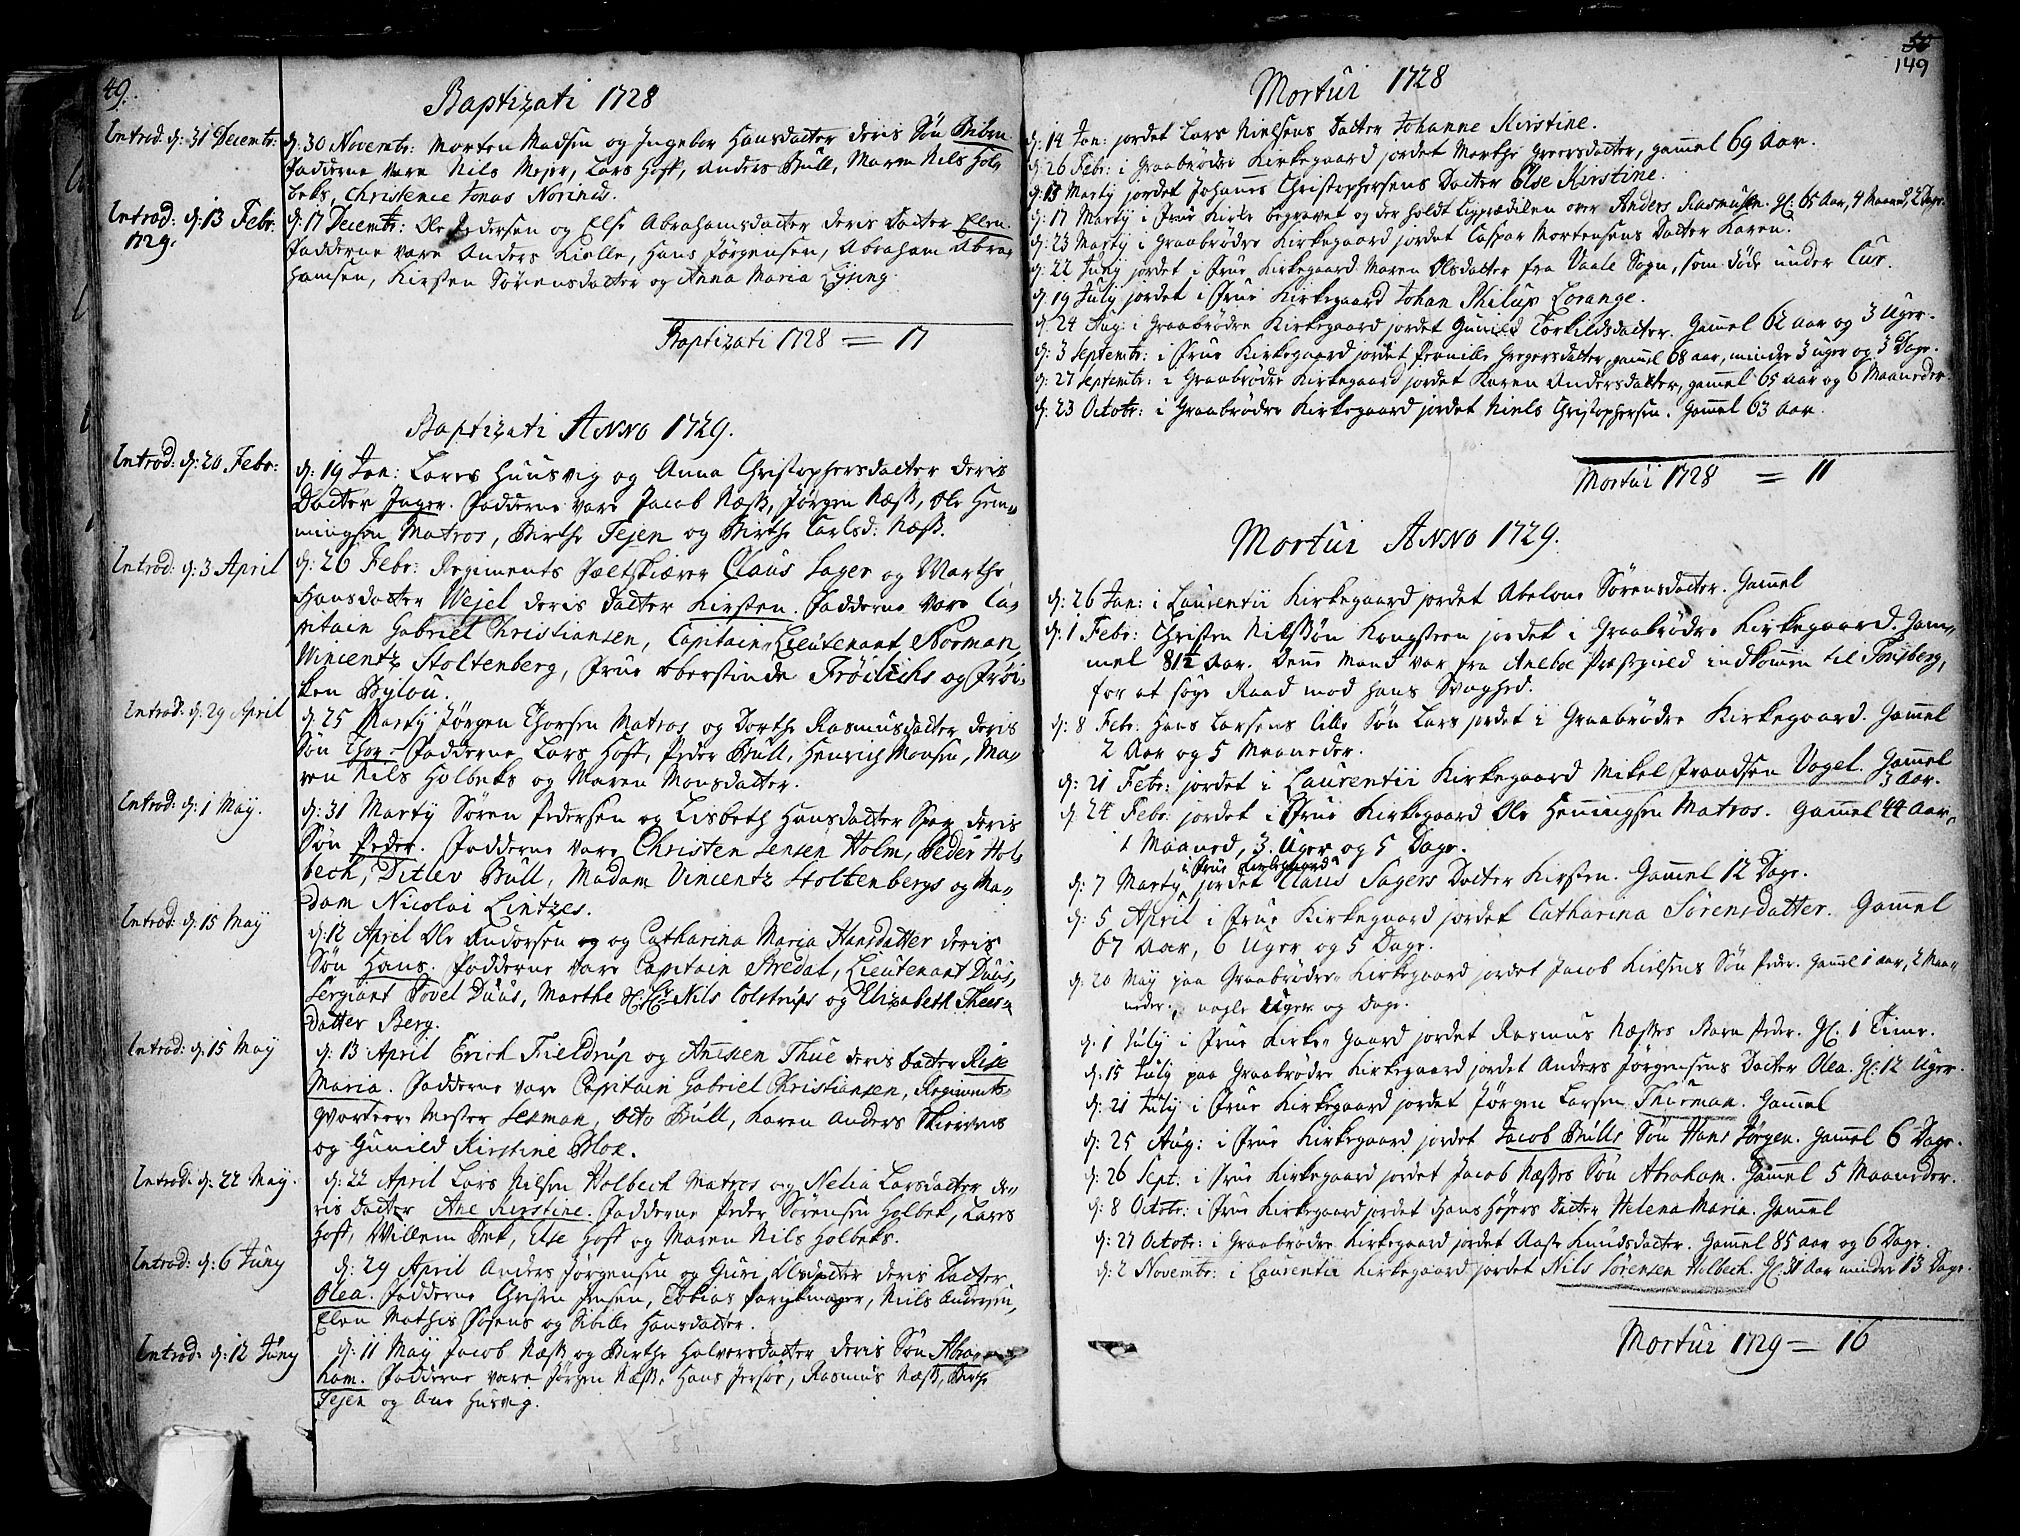 49.
Baptizati 1728
Introd: d: 31 Decembr:
d: 30 Novembr: Morten Madsen og Ingebor Hansdatter deris Søn
Fadderne vare Nils Mejer, Lars Hoft, Anders Bull, Maren Nils Hol-
beks, Christence Jonas
Introd: d: 13 Febr:
1729.
d: 17 Decembr: Ole Pedersen og Else Abrahamsdatter deris Datter Elen.
Fadderne vare Anders Kielle, Hans Jørgensen, Abraham Abra-
hamsen, Kirsten Sørensdatter og Anna Maria
Baptizati 1728 = 17
Baptizati Anno 1729.
Introd: d: 20 Febr:
d: 19 Jan: Lars Huusvig og Anna Christophersdatter deris
Datter Inger. Fadderne vare Jacob Næss, Jørgen Næss, Ole Hen-
ningsen Matros, Birthe Fejen og Birthe Carlsd: Næss.
Introd: d: 3 April
d: 26 Febr: Regiments Feltskiærer Claus Sager og Marthe
Hansdatter Wejel deris Datter Kirsten. Fadderne vare Ca-
pitain Gabriel Christiansen, Capitain Lieutenant Norman
Vincentz Stoltenberg, Frue Oberstinde Frøilichs og Frøi-
ken Bylou.
Introd: d: 29 April
d: 25 Marty Jørgen Thorsen Matros og Dorthe Rasmusdatter deris
Søn Thor. Fadderne Lars Hoft, Peder Bull, Henrich Monsen, Ma-
ren Nils Holbeks og Maren Monsdatter.
Introd: d: 1 May.
d: 31 Marty Søren Pedersen og Lisbeth Hansdatter deris
Søn Peder. Fadderne vare Christen Jensen Holm, Peder Hol-
bech, Ditlev Bull, Madam Vincentz Stoltenbergs og Ma-
dam Nicolai Lintzes.
Introd: d: 15 May
d: 12 April Ole Andersen og og Catharina Maria Hansdatter deris
Søn Hans. Fadderne vare Capitain Bredal, Lieutenant Duus,
Sergiant Povel Duus, Marthe Nils Colstrups og Elizabeth Thees-
datter Berg.
Introd: d: 15 May
d: 13 April Erich Fieldrup og Anniken Thue deris Datter Rise
Maria. Fadderne vare Capitain Gabriel Christiansen, Regiments-
qvarteer Mester Leeman, Otto Bull, Karen Anders Skierens
og Gunild Kirstine Blok.
Introd: d: 22 May.
d: 22 April Lars Nilsen Holbech Matros og Netia Larsdatter de-
ris Datter Ane Kirstine. Fadderne Peder Sørensen Holbek, Lars
Hoft, Willem Bek, Else Hoft og Maren Nils Holbeks.
Introd: d: 6 Juny
d: 29 April Anders Jørgensen og Guri Olsdatter deris Datter
Olea. Fadderne Christen Jensen, Tobias Parykmager, Niils Andersen,
Elen Mathis og Sibille Hansdatter.
Introd: d: 12 Juny
d: 11 May Jacob Næss og Birthe Halversdatter deris Søn Abra-
ham. Fadderne vare Jørgen Næss, Hans Jersøe, Rasmus Næss, Birthe
Fejen og Ane Husvig.
50
149
Mortui 1728
d: 14 Jan: jordet Lars Nielsens Datter Johanne Kirstine.
d: 26 Febr: i Graabrødre Kirkegaard jordet Marthe Greersdatter, gammel 69 Aar.
d: 13 Marty jordet Johannes Christophersens Datter Else Kirstine.
d: 17 Marty i Frue Kirke begravet og der holdt Ligprædiken over Anders Rasmussen. Gl: 65 Aar, 4 Maaned, 2 Dage.
d: 23 Marty i Graabrødre Kirkegaard jordet Caspar Mortensens Datter Karen.
d: 22 Juny jordet i Frue Kirkegaard Maren Olsdatter fra Vaale Sogn, som døde under Cur.
d: 19 July jordet i Frue Kirkegaard Johan Philup Lorange.
d: 24 Aug: i Graabrødre Kirkegaard jordet Gunild Torkildsdatter. Gammel 62 Aar og 3 Uger.
d: 3 Septembr: i Frue Kirkegaard jordet Pernille Gregersdatter, gammel 68 aar, mindre 3 uger og 3 Dage.
d: 27 Septembr: i Graabrødre Kirkegaard jordet Karen Andersdatter, gammel 65 aar og 6 Maaneder.
d: 23 Octobr: i Graabrødre Kirkegaard jordet Niels Christophersen. Gammel 63 Aar.
Mortui 1728 = 11
Mortui Anno 1729.
d: 26 Jan: i Laurentii Kirkegaard jordet Abelone Sørensdatter. Gammel
d: 1 Febr: Christen Nilssøn Kongsteen jordet i Graabrødre Kirkegaard. Gam-
mel 81½ Aar. Denne Mand var fra Aneboe Præstegield indkommen til Tonsberg,
for at søge Raad mod hans Svaghed.
d: 8 Febr: Hans Larsens lille Søn Lars jordet i Graabrødre Kirkegaard. Gammel
2 Aar og 5 Maaneder.
d: 21 Febr: jordet i Laurentii Kirkegaard Mikel Frandsen Vogel. Gammel
3 Aar.
d: 24 Febr: jordet i Frue Kirkegaard Ole Henningsen Matros. Gammel 44 Aar,
1 Maaned, 3 Uger og 5 Dage.
i Frue Kirkegaard
d: 7 Marty jordet Claus Sagers Datter Kirsten. Gammel 12 Dage.
d: 5 April i Frue Kirkegaard jordet Catharina Sørensdatter. Gammel
67 Aar, 6 Uger og 5 Dage.
d: 20 May paa Graabrødre Kirkegaard jordet Jacob Nielsens Søn Peder. Gammel 1 aar, 2 Maa-
neder, nogle Uger og Dage.
d: 1 July i Frue Kirke Gaard jordet Rasmus Næsses Barn Peder. Gl: 1 Time.
d: 15 July paa Graabrødre Kirkegaard jordet Anders Jørgensens Datter Olea. Gl: 12 Uger.
d: 21 July i Frue Kirkegaard jordet Jørgen Larsen Thurman. Gammel
d: 25 Aug: i Frue Kirkegaard jordet Jacob Bulls Søn Hans Jørgen. Gammel 6 Dage.
d: 26 Sept. i Frue Kirkegaard jordet Jacob Næsses Søn Abraham. Gammel 5 Maaneder.
d: 8 Octobr: i Frue Kirkegaard jordet Hans Høyers Datter Helena Maria. Gammel
d: 27 Octobr: i Graabrødre Kirkegaard jordet Aase Knudsdatter. Gammel 85 Aar og 6 Dage.
d: 2 Novembr: i Laurentii Kirkegaard jordet Nils Sørensen Holbech. Gl: 31 Aar mindre 13 Dage.
Mortui 1729 = 16